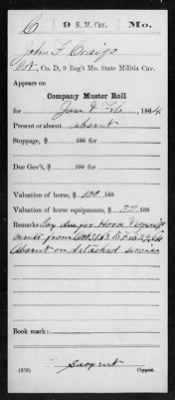 6 9 S. M. Cav. Mo.
John F Craigo
Pvt, Co. D, 9 Reg't Mo. State Militia Cav.
Appears on
Company Muster Roll
for Jan & Feb, 1864
Present or absent absent
Stoppage, $ 100
Due Gov't, $ 100
Valuation of horse, $ 100
Valuation of horse equipments, $ 100
Remarks Pay due for Horse & Equip
ments from 63 to Feb 29 64
Absent on detached service
Book mark:
(359) Copyist.